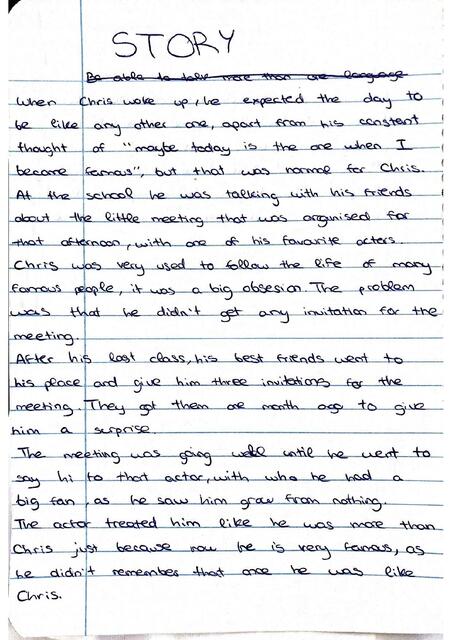 STORY
Be able to talk more than one language
When Chris woke up, he expected the day to
be like any other one, apart from his constant
thought of "maybe today is the one when I
become famous", but that was normal for Chris.
At the school he was talking with his friends
about the little meeting that was organised for
that afternoon, with one of his favourite acters.
Chris was very used to follow the life of many
famous people, it was a big obsesion. The problem
was that he didn't get any invitation for the
meeting.
After his last class, his best friends went to
his place and give him three invitations for the
meeting. They got them one month ago to give
him a surprise.
The meeting was going well until he went to
say hi to that actor, with who he had a
big fan, as he saw him grow from nothing.
The actor treated him like he was more than
Chris just because now he is very famous, as
he didn't remember that once he was like
Chris.